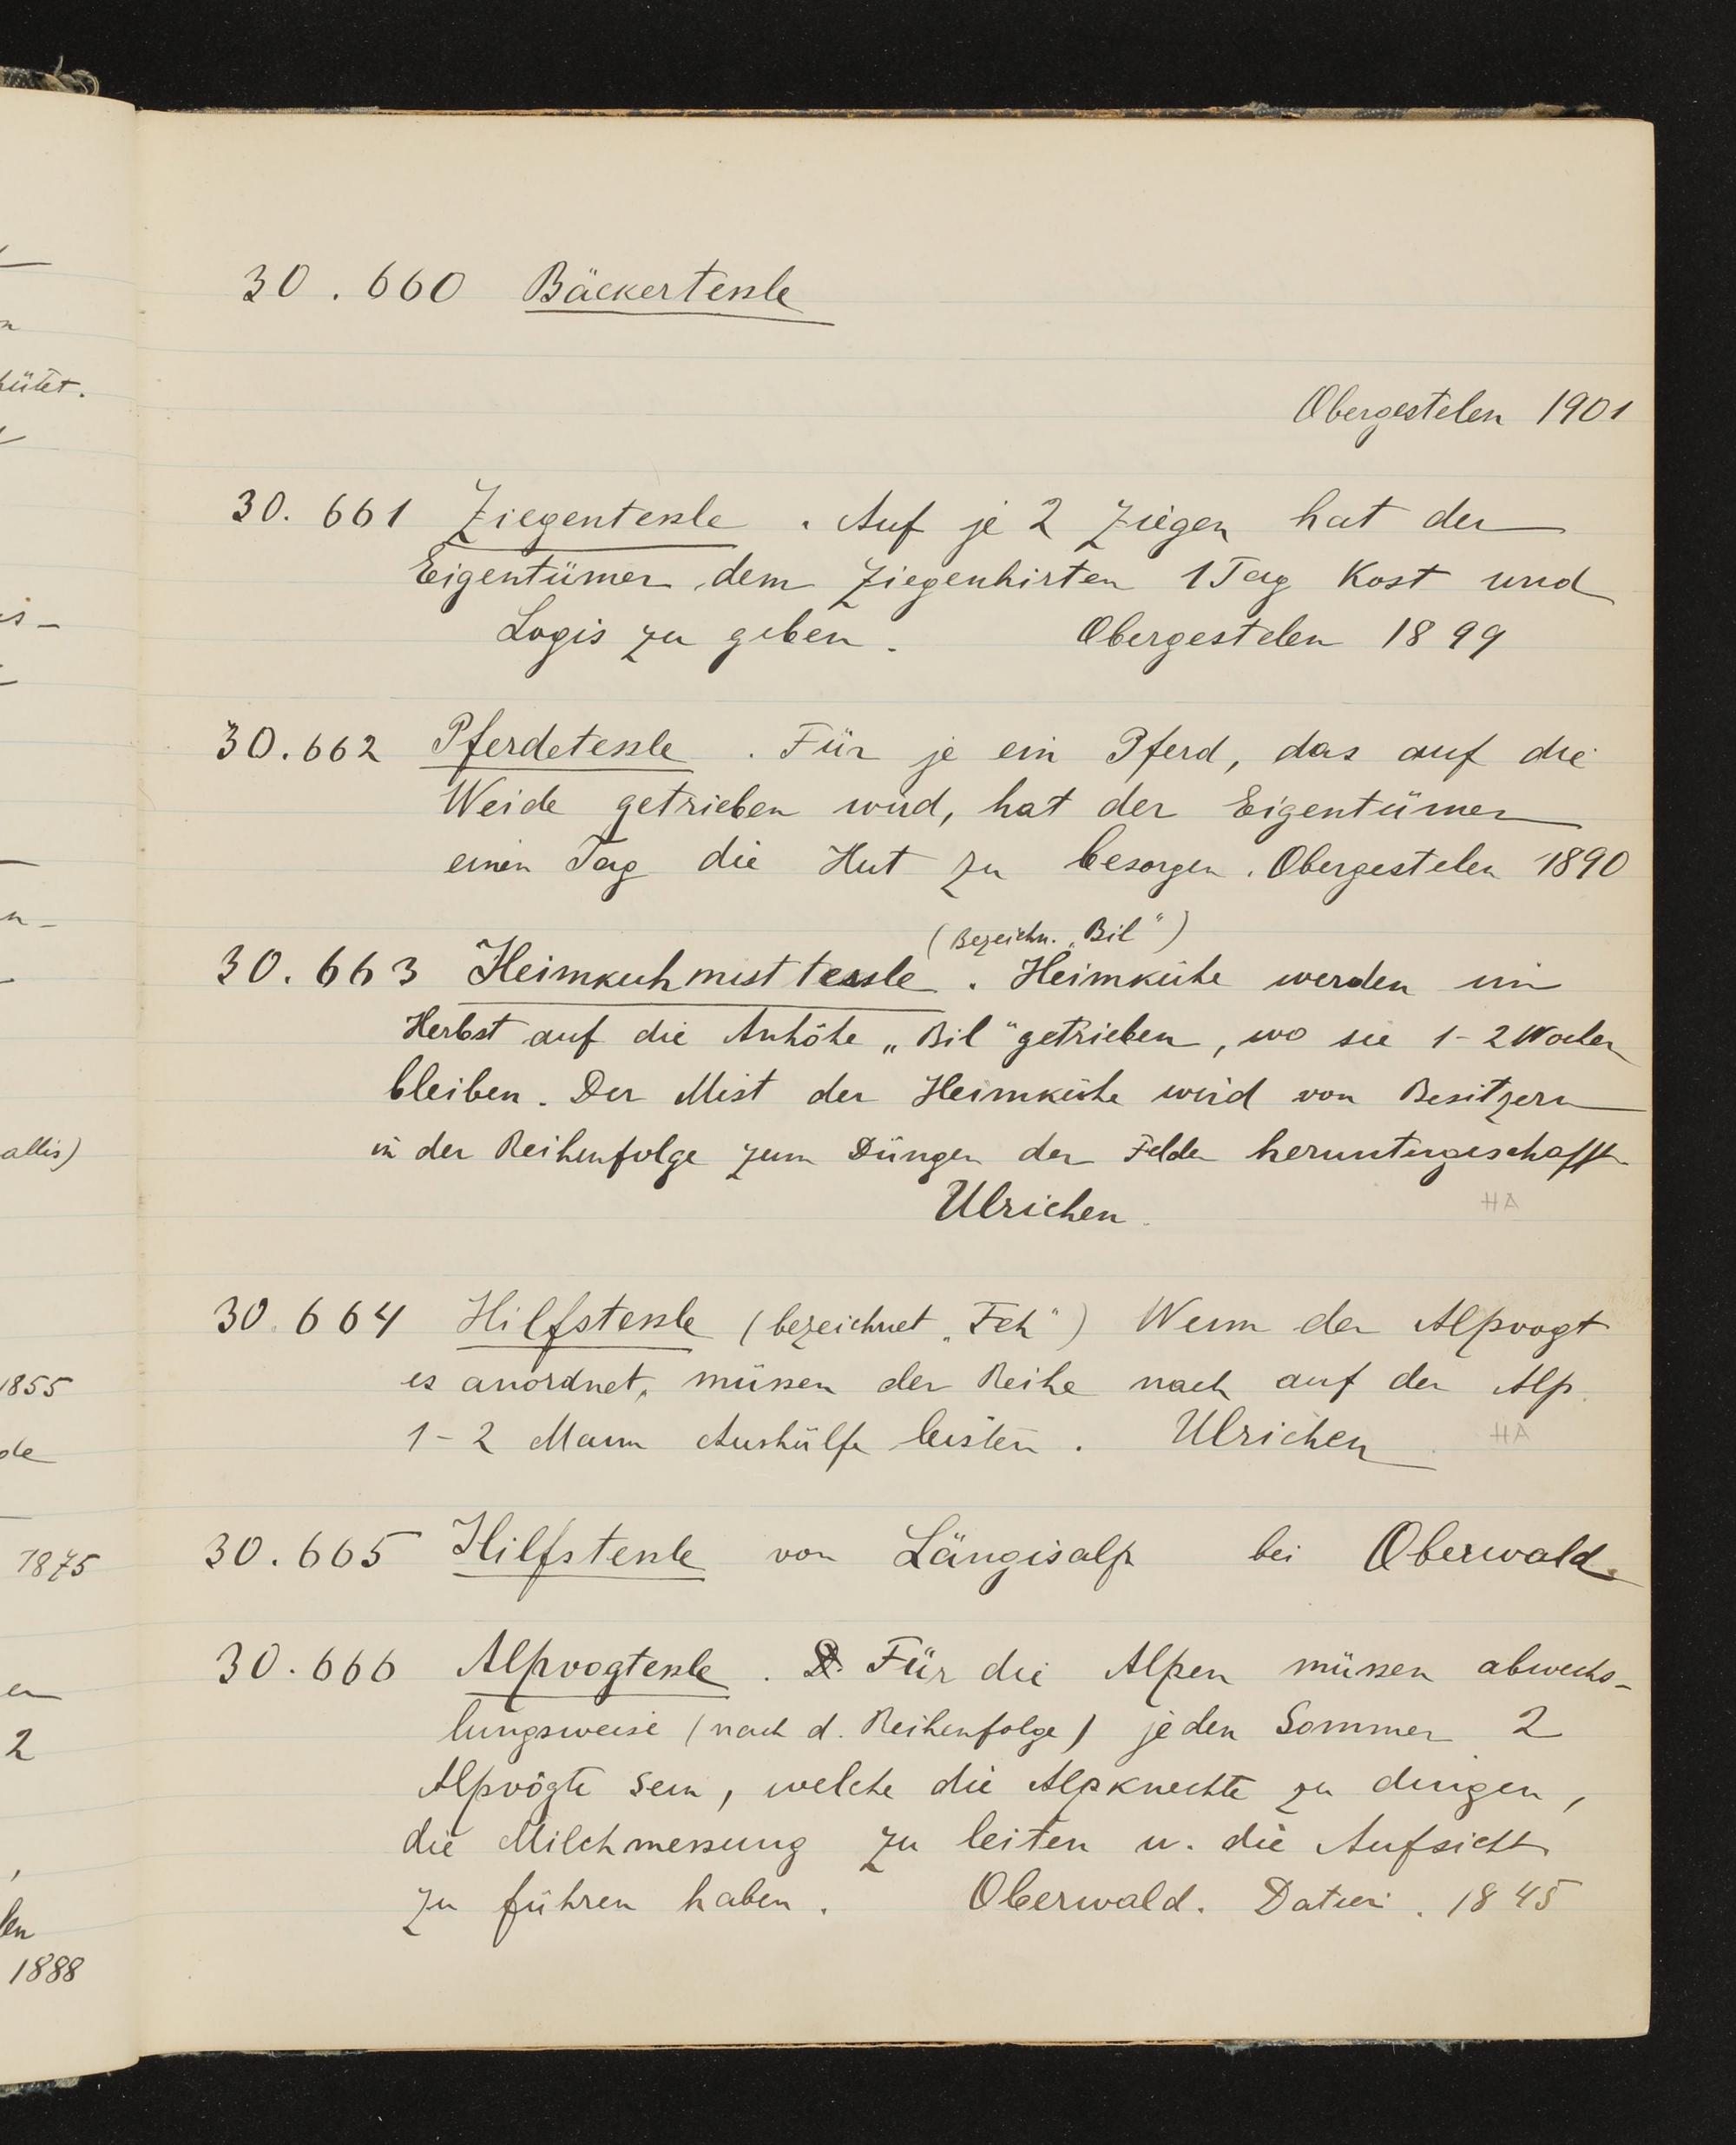 30.660 Bäckertessle
Obergestelen 1901
30.661 Ziegentessle. Auf je 2 Ziegen hat der
Eigentümer dem Ziegenhirten 1 Tag Kost und
Logis zu geben. Obergestelen 1899
30.662 Pferdetessle. Für je ein Pferd, das auf die
Weide getrieben wird, hat der Eigentümer
einen Tag die Hut zu besorgen. Obergestelen 1890
(Bezeichn. „Bil")
30.663 Heimkuhmisttessle. Heimkühe werden im
Herbst auf die Anhöhe „Bil" getrieben, wo sie 1-2 Wochen
bleiben. Der Mist der Heimkühe wird von Besitzern
in der Reihenfolge zum Düngen der Felder heruntergeschafft.
Ulrichen. HA
30.664 Hilfstessle (bezeichnet „Feh") Wenn der Alpvogt
es anordnet, müssen der Reihe nach auf der Alp.
1-2 Mann Aushülfe leisten. Ulrichen HA
30.665 Hilfstessle von Längisalp bei Oberwald.
30.666 Alpvogtessle. Für die Alpen müssen abwechs-
lungsweise (nach d. Reihenfolge) jeden Sommer 2
Alpvögte sein, welche die Alpknechte zu dingen,
die Milchmessung zu leiten u. die Aufsicht
zu führen haben. Oberwald. Datier. 1845
hütet.
allis)
1855
1875
2
1888